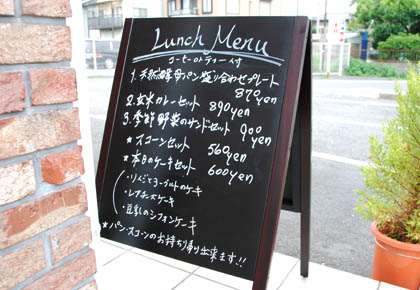 Lunch Menu
コーヒーorティー付
1. 天然酵母パン盛り合わせプレート
870yen
2. 玄米カレーセット 890yen
3. 季節野菜のサンドセット 900yen
★スコーンセット 560yen
★本日のケーキセット 600yen
・りんごとヨーグルトのケーキ
・レアチーズケーキ
・豆乳のシフォンケーキ
★パン・スコーンのお持ち帰り出来ます!!